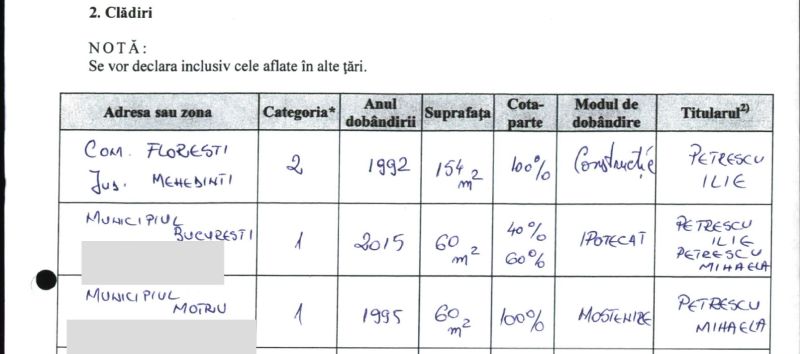 2. Clădiri
NOTĂ:
Se vor declara inclusiv cele aflate în alte țări.
Adresa sau zona Categoria* Anul dobândirii Suprafața Cota-parte Modul de dobândire Titularul2)
COM. FLOREȘTI
JUD. MEHEDINȚI
2 1992 154 m2 100% Construcție PETRESCU
ILIE
MUNICIPIUL
BUCUREȘTI
1 2015 60 m2 40%
60%
IPOTECAT PETRESCU
ILIE
PETRESCU
MIHAELA
MUNICIPIUL
MOTRU
1 1995 60 m2 100% MOSTENIRE PETRESCU
MIHAELA